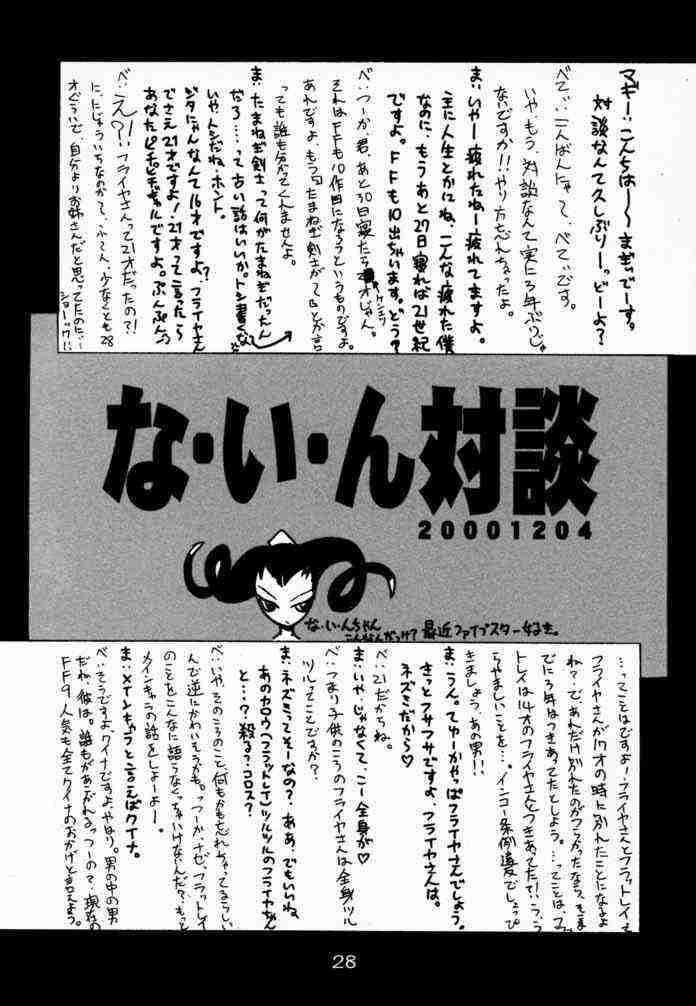 マギー：こんちは～～まぎぃでーす。
対談なんて久しぶりーっどーよ？
べてぃ：こんばんにゃて、べてぃです。
いや、もう、対談なんて実に3年ぶりじゃ
ないですか!!やり方忘れちゃったよ。
ま：いやー疲れたねー疲れてますよ。
主に人生とかにね、こんな疲れた僕
なのに、もうあと27日寝れば21世紀
ですよ。FFも10出ちゃいます。どう？
べ：つーか、君、あと30日寝たら
オじゃん。
それはFFも10作目になろうというものですよ。
あれですよ、もう
たまねぎ剣士がて
とか言
っても誰も分かってくれませんよ。
ま：たまねぎ剣士って何がたまねぎだったん
だろ…って古い話はいいか。トシ書くな
いや、トシだね、ホント。
ジタにゃんなんて16才ですよ？フライヤさん
でさえ21才ですよ！21才って言ったら
あなたピチピチギャルですよ。ぷんぷん
べ：え？！フライヤさんって21才だったの？！
に、にじょういちなのかて、ふへん、少なくとも28
オぐらいで、自分よりお姉さんだと思ってたのに…
ショーック!!
な・い・ん対談
20001204
な・い・んちゃん
こんなんだっけ？
最近ファイブスター好き。
…ってことはですよ！フライヤさんとフラットレイて
フライヤさんが17オの時に別れたことになるよ
ね？で、あれだけ別れたのがつらかったなら、そのま
でに3年はつきあってたとしよう。…ってことは、フ
トレイは14オのフライヤさんとつきあってた?!こう、う
らやましいことを…。インコー条例違反でしょっぴ
きましょう、あの男!!
ま：うん。てゆーかやっぱフライヤさんでしょう。
きっとフサフサですよ、フライヤさんは。
ネズミだから♡
べ：21だからね。
ま：いや、じゃなくて、こー全身が♡
べ：つまり子供のころのフライヤさんは全身ツル
ツルってことですか？
ま：ネズミってそーなの？ああ、でもいいね、
あのカロウ（フラットレイ）ツルツルのフライヤちゃん
と…？殺る？コロス？
べ：いや、そのころのこと、何もかも忘れちゃってるらしい
んで逆にかわいそうかも。っつーか、ナゼ、フラットレイ
のことをこんなに語らなくっちゃいけないんだ？もっと
メインキャラの話をしよーよー。
ま：メインキャラと言えばクイナ。
べ：そうですよ、クイナですよ、やはり。男の中の男
だね、彼は。誰もがあこがれるっつーの？現在の
FF9人気も全てクイナのおかげと言えよう。
28